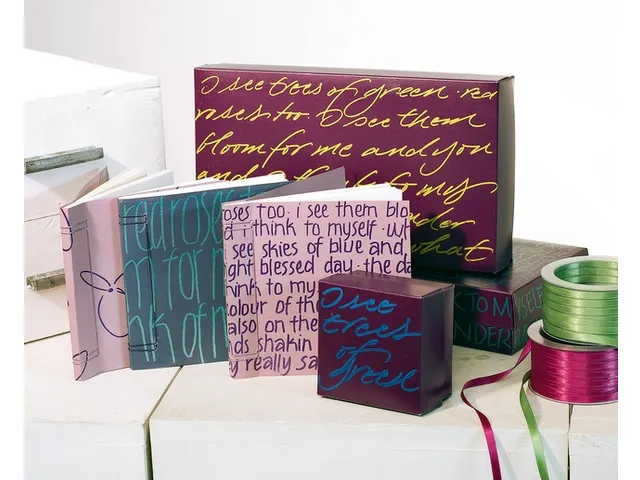 I see trees of green. red
roses too. I see them
bloom for me and you
and
to my
what
red roses t
m for m
nk of m
oses too. i see them blo
d i think to myself. w
see skies of blue and
ght blessed day. the da
hink to my
colour of th
also on the
nds shakin
y really sa
I see
trees
of
green
K TO MYSELF
NDERF